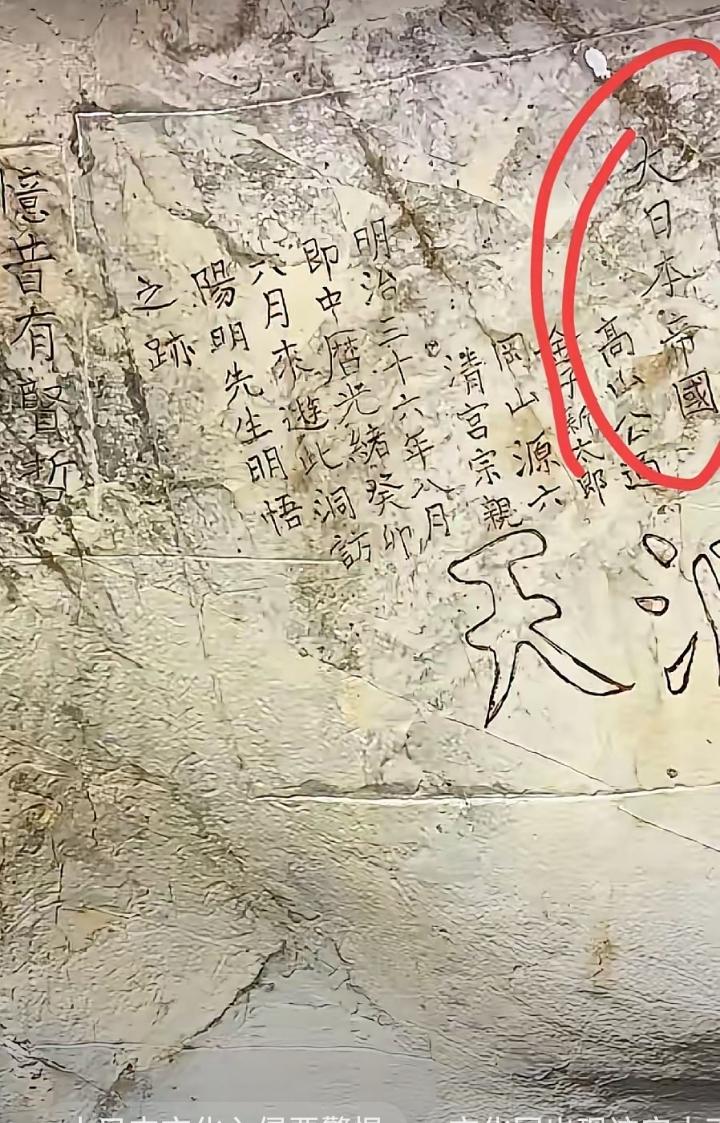 大日本帝國
高山公通
金子新太郎
岡山源六
清宮宗親
明治三十六年八月
即中暦光緒癸卯
六月來遊此洞訪
陽明先生明悟
之跡
憶昔有賢哲
天